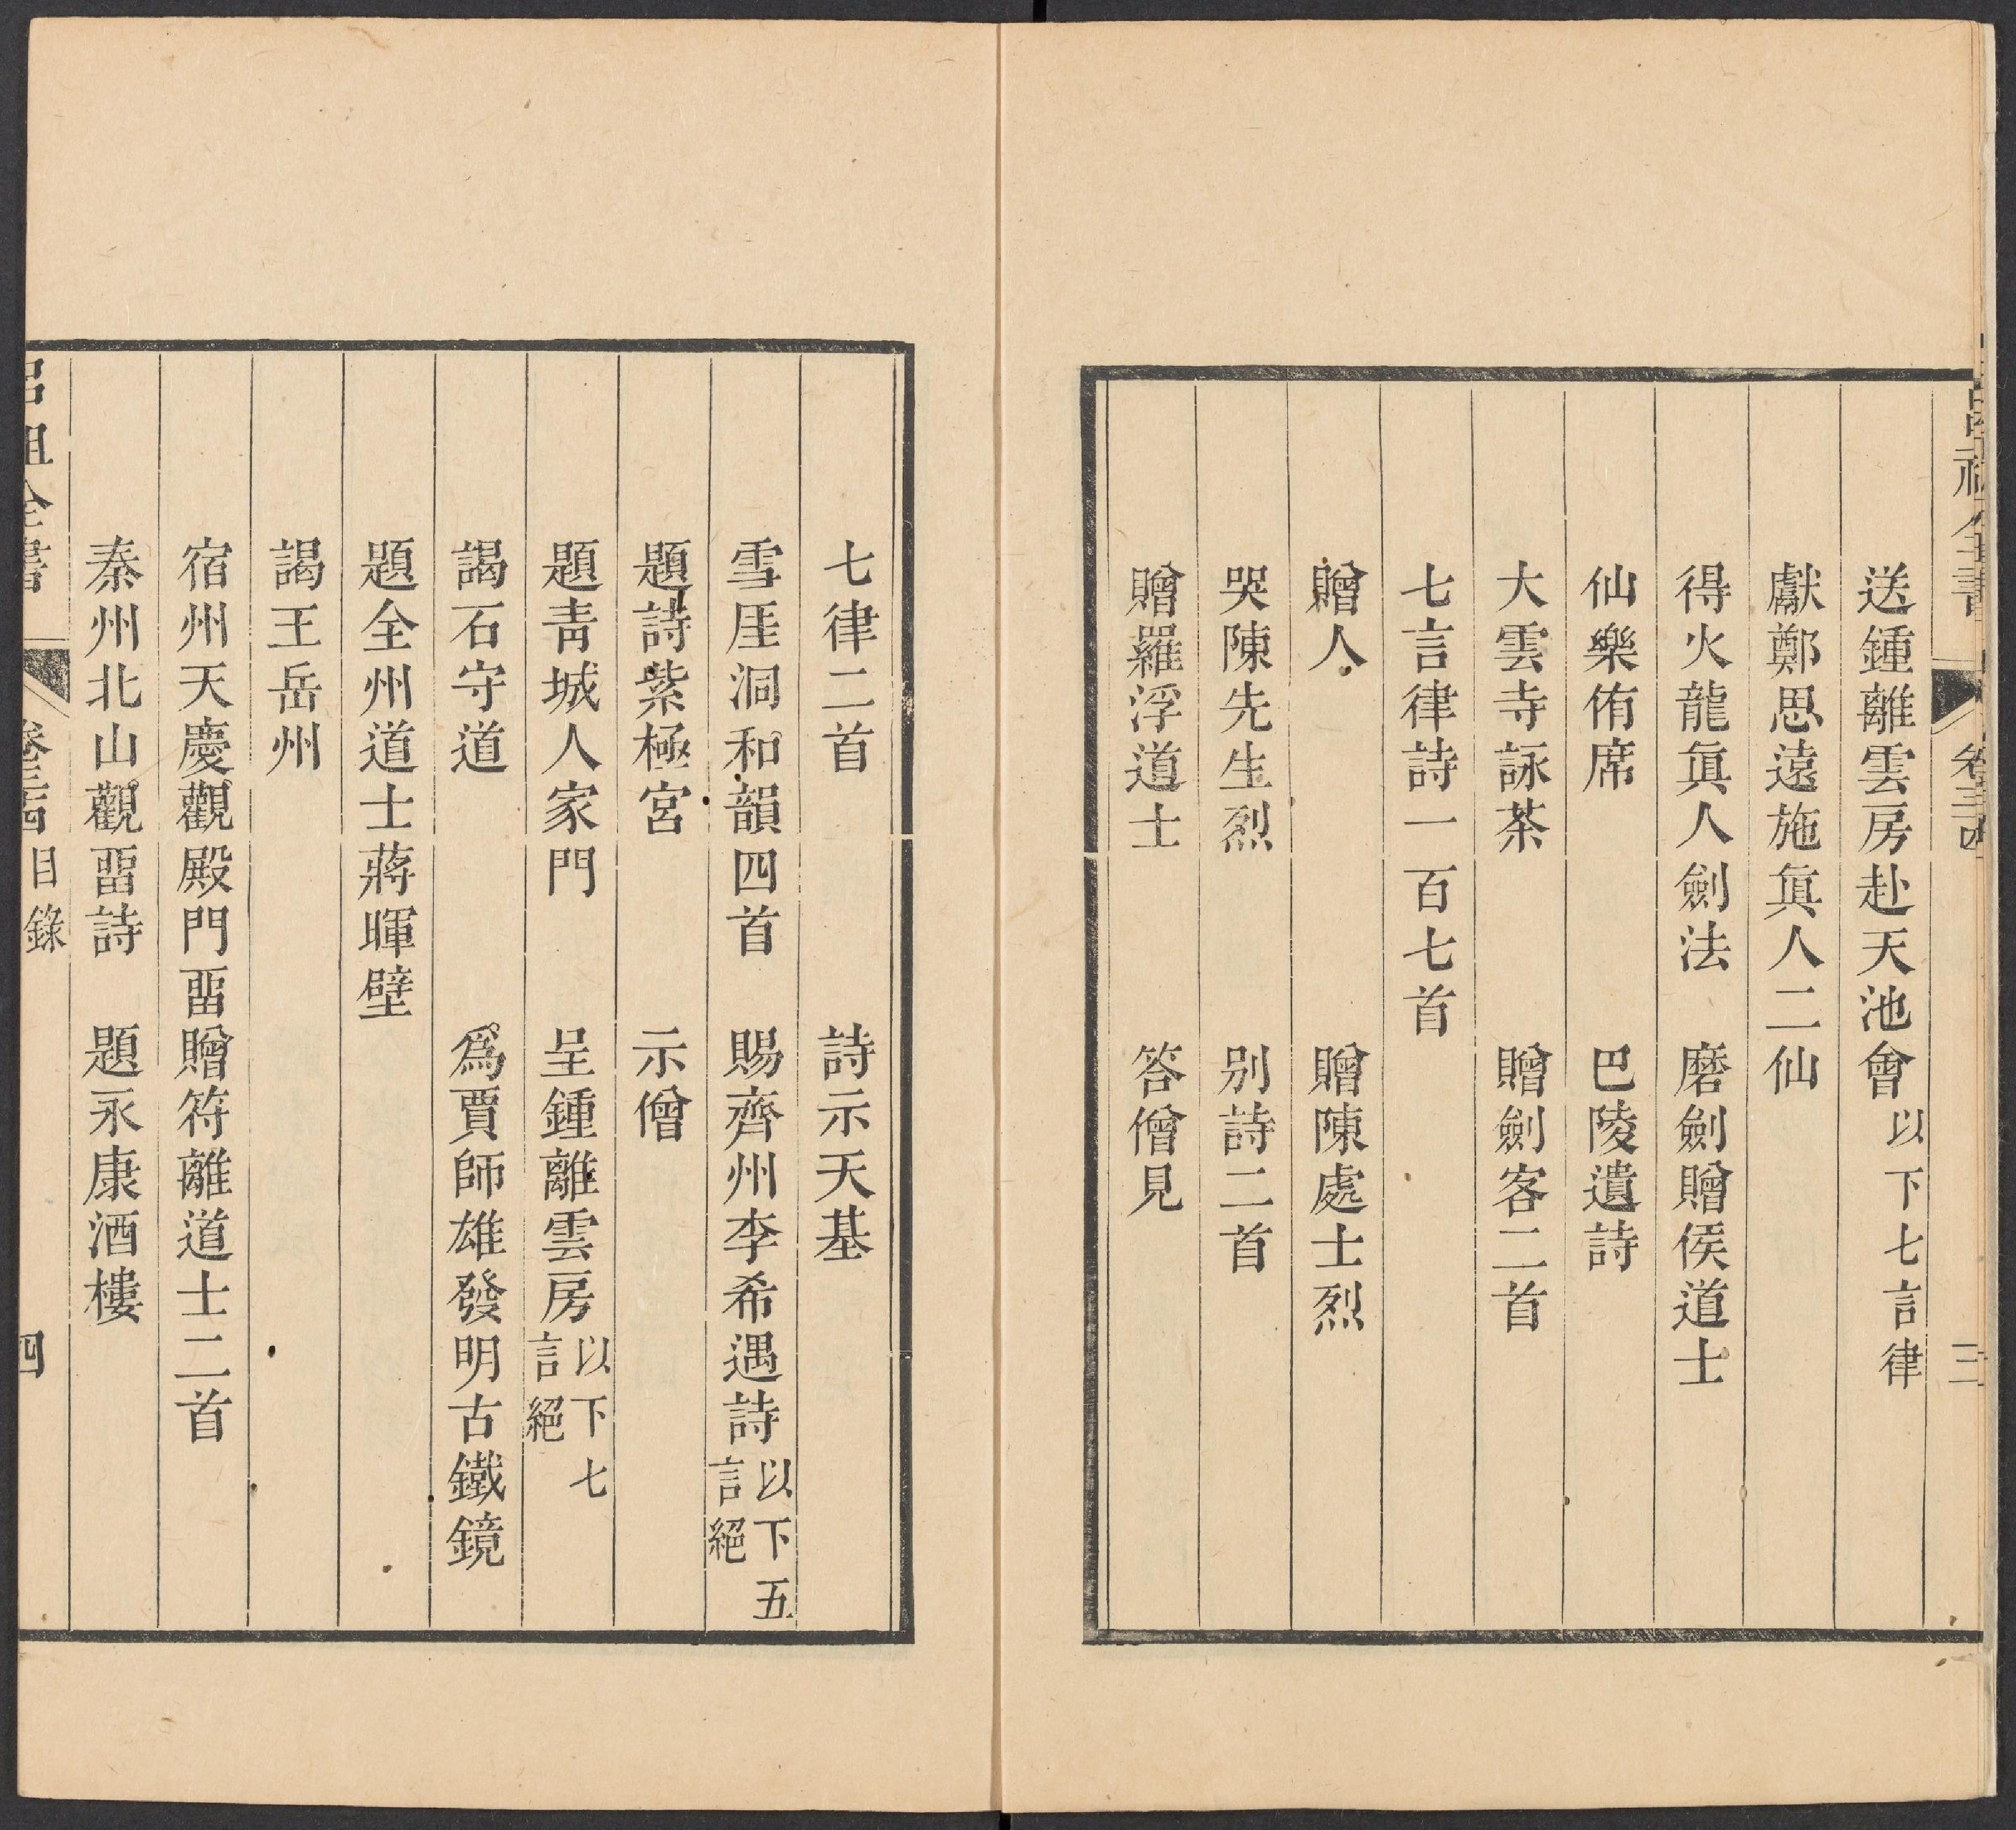 呂祖全書 卷三四 三
送鍾離雲房赴天池會 以下七言律
獻鄭思遠施眞人二仙
得火龍眞人劍法 磨劍贈侯道士
仙樂侑席 巴陵遺詩
大雲寺詠茶 贈劍客二首
七言律詩一百七首
贈人 贈陳處士烈
哭陳先生烈 别詩二首
贈羅浮道士 答僧見
七律二首 詩示天基
雪厓洞和韻四首 賜齊州李希遇詩 以下五言絕
題詩紫極宮 示僧
題靑城人家門 呈鍾離雲房 以下七言絕
謁石守道 爲賈師雄發明古鐵鏡
題全州道士蔣暉壁
謁王岳州
宿州天慶觀殿門畱贈符離道士二首
秦州北山觀畱詩 題永康酒樓
呂祖全書 卷三四 目錄 四